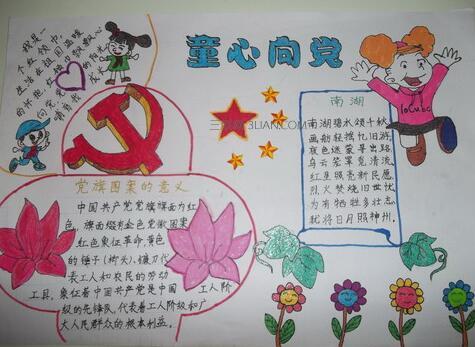 我是一
个红领巾,
生在祖国温暖
的怀抱,
向党,党的阳光
哺育我成长
童心向党
3LIAN.COM
南湖
南湖碧水领千秋
画舫轻摇忆旧游
夜色迷蒙寻出路
乌云笼罩觅清流
红星照亮新民愿
烈火焚烧旧世忧
为有牺牲多壮志
犹将日月照神州。
党旗图案的意义
中国共产党党旗旗面为红
色,旗面缀有金色党徽图案
红色象征革命,黄色
的锤子(榔头)、镰刀代
表工人和农民的劳动
工具,象征着中国共产党是中国工人阶
级的先锋队,代表着工人阶级和广
大人民群众的根本利益。